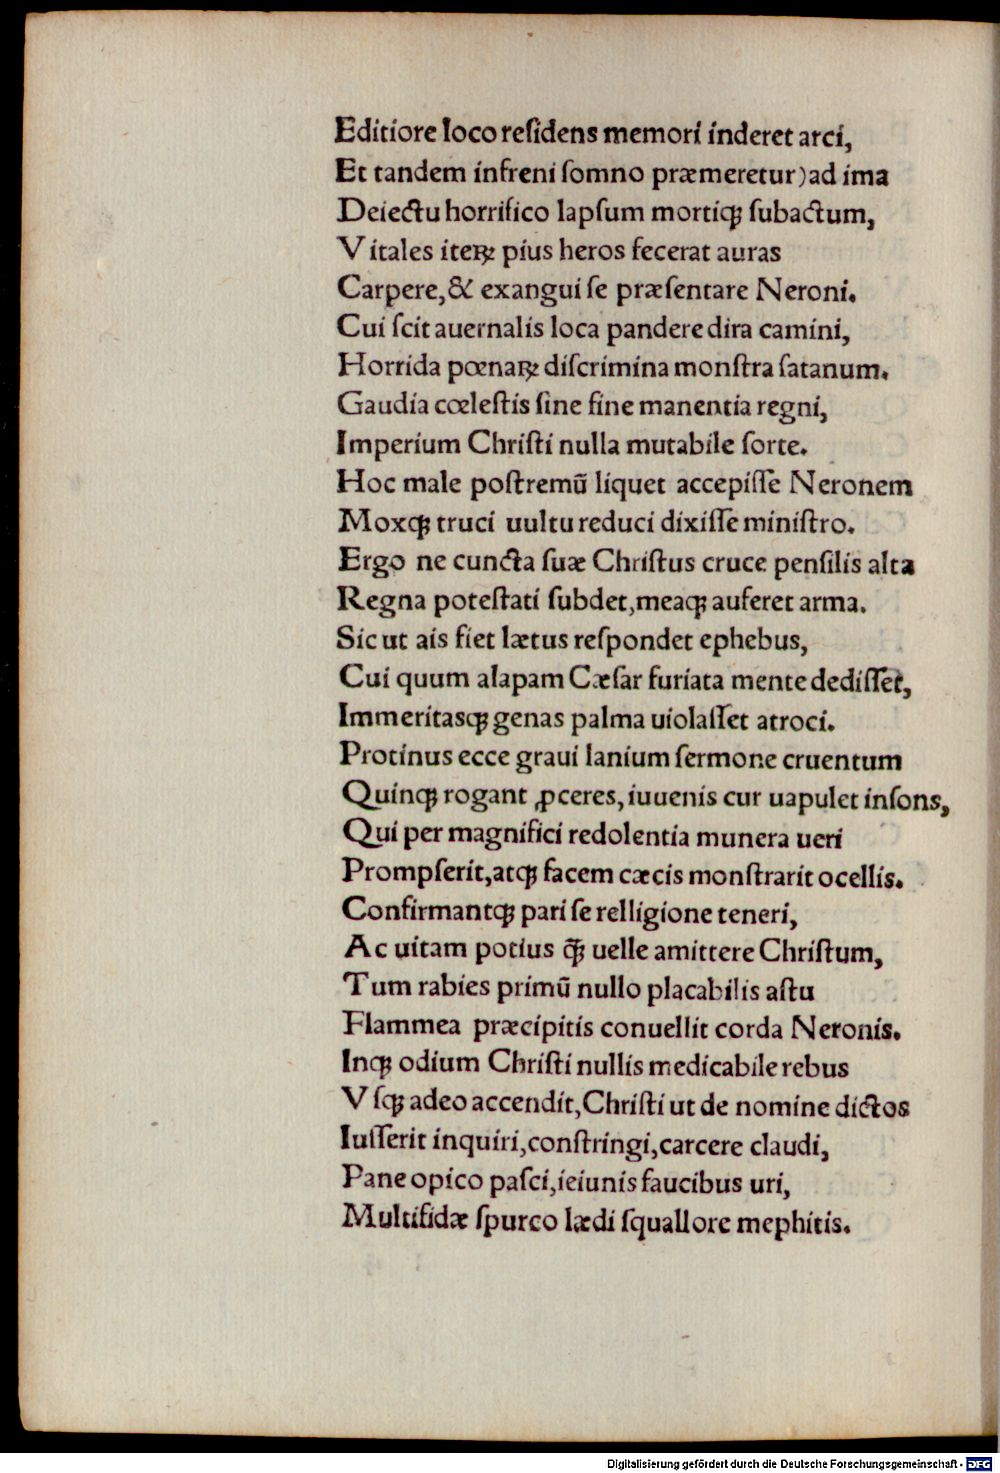 Editiore loco reſidens memori inderet arci,
Et tandem infreni ſomno præmeretur)ad ima
Deiectu horrifico lapſum mortiqꝫ ſubactum,
Vitales iteꝝ pius heros fecerat auras
Carpere,& exangui ſe præſentare Neroni.
Cui ſcit auernalis loca pandere dira camini,
Horrida pœnaꝝ diſcrimina monſtra ſatanum.
Gaudia cœleſtis ſine fine manentia regni,
Imperium Chriſti nulla mutabile ſorte.
Hoc male poſtremū liquet accepiſſe Neronem
Moxqꝫ truci uultu reduci dixiſſe miniſtro.
Ergo ne cuncta ſuæ Chriſtus cruce penſilis alta
Regna poteſtati ſubdet,meaqꝫ auferet arma.
Sic ut ais fiet lætus reſpondet ephebus,
Cui quum alapam Cæſar furiata mente dediſſet,
Immeritasqꝫ genas palma uiolaſſet atroci.
Protinus ecce graui lanium ſermone cruentum
Quinqꝫ rogant ꝓceres, iuuenis cur uapulet inſons,
Qui per magnifici redolentia munera ueri
Prompſerit,atqꝫ facem cæcis monſtrarit ocellis.
Confirmantqꝫ pari ſe relligione teneri,
Ac uitam potius q̄ꝫ uelle amittere Chriſtum,
Tum rabies primū nullo placabilis aſtu
Flammea præcipitis conuellit corda Neronis.
Inqꝫ odium Chriſti nullis medicabile rebus
Vſqꝫ adeo accendit,Chriſti ut de nomine dictos
Iuſſerit inquiri,conſtringi,carcere claudi,
Pane opico paſci,ieiunis faucibus uri,
Multifidæ ſpurco lædi ſquallore mephitis.
Digitalisierung gefördert durch die Deutsche Forschungsgemeinschaft - DFG